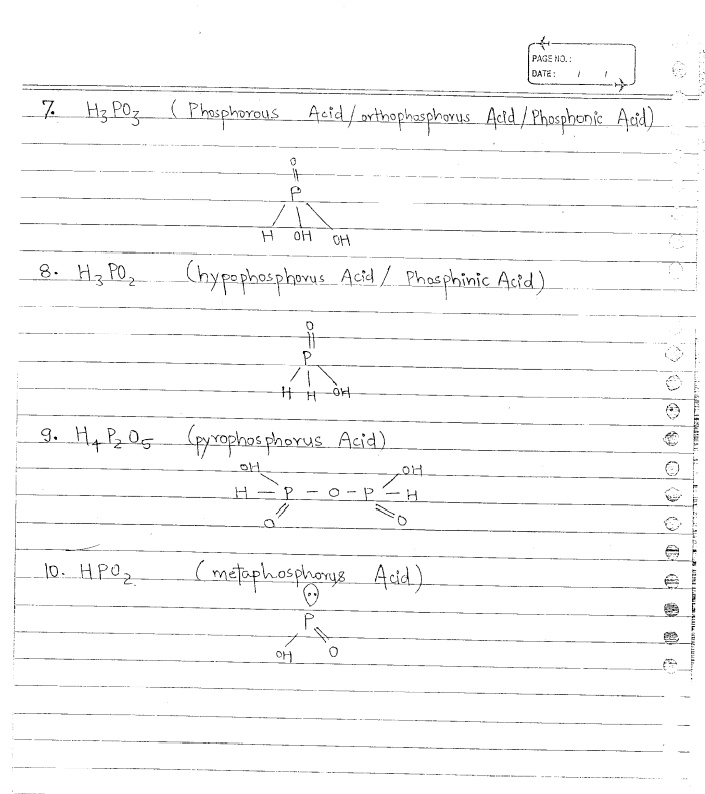 PAGE NO.:
DATE: / /
7. H₃PO₃ (Phosphorous Acid/orthophosphorus Acid/Phosphonic Acid)
O
P
H OH OH
8. H₃PO₂ (hypophosphorus Acid/ Phosphinic Acid)
O
P
H H OH
9. H₄P₂O₅ (pyrophosphorus Acid)
OH OH
H — P — O — P — H
O O
10. HPO₂ (metaphosphorus Acid)
P
OH O